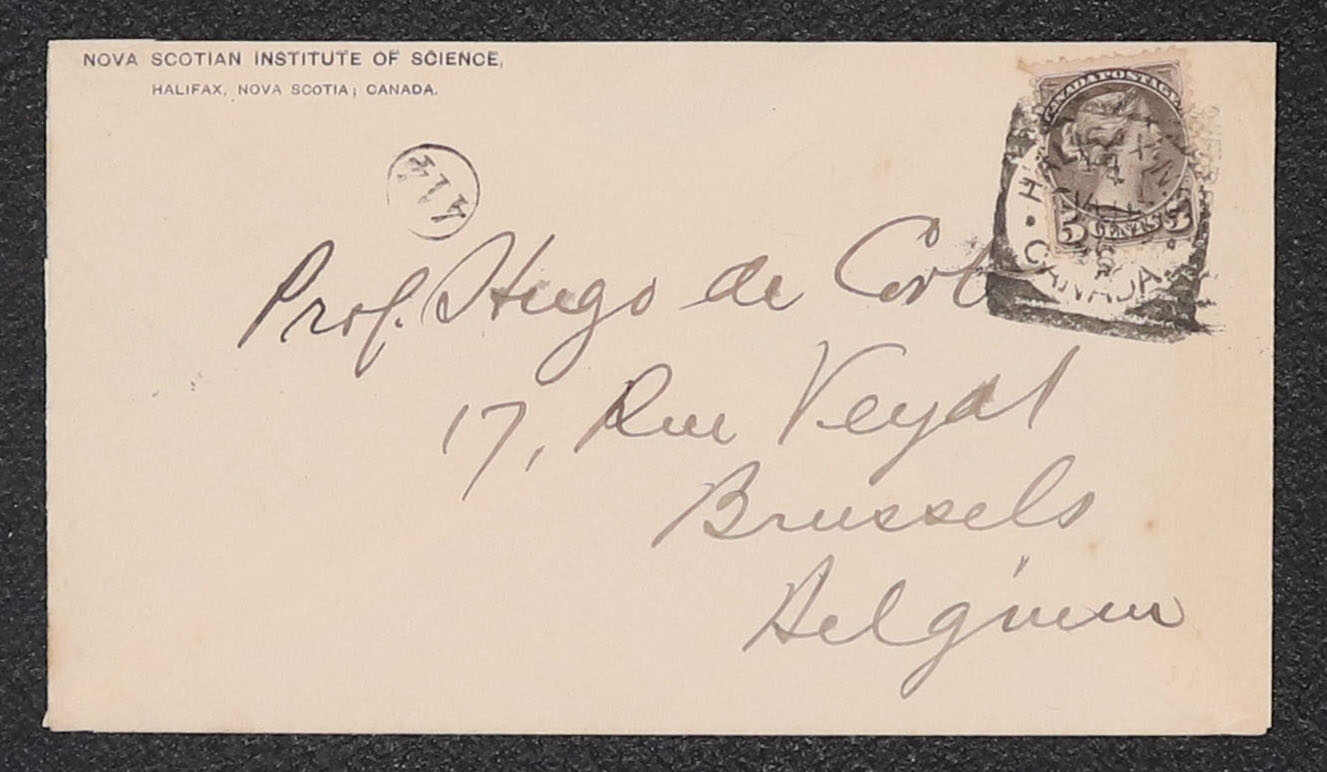 NOVA SCOTIAN INSTITUTE OF SCIENCE,
HALIFAX, NOVA SCOTIA; CANADA.
CANADA POSTAGE
5 CENTS 5
CANADA
Prof. Hugo de
17, Rue Veydt
Brussels
Belgium